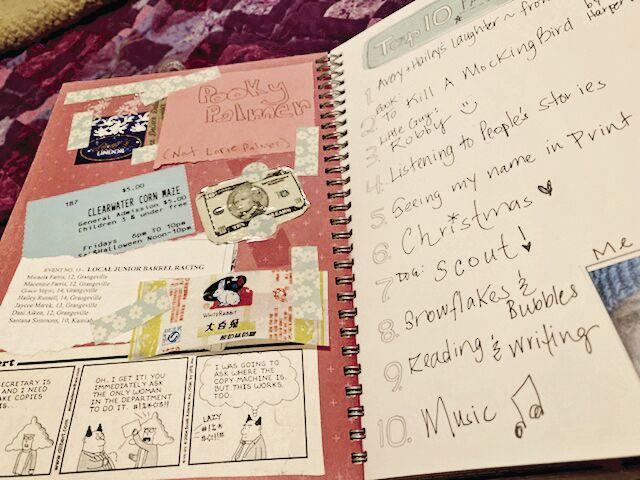 Pooky
Palmer
(Not Lorie Palmer)
LINDOR
$5.00
187
CLEARWATER CORN MAZE
General Admission $5.00
Children 3 & under free
Fridays 6pm TO 10pm
Sat&Halloween Noon-10pm
EVENT NO. 13 - LOCAL JUNIOR BARREL RACING
Micaela Farris, 12, Grangeville
Macenzie Farris, 12, Grangeville
Grace Vopat, 14, Grangeville
Hailey Russell, 14, Grangeville
Jaycee Marek, 13, Grangeville
Dani Aiken, 12, Grangeville
Santana Simmons, 10, Kamiah
WHITE RABBIT
大白兔
SECRETARY IS
AND I NEED
MAKE COPIES
OH, I GET IT! YOU
IMMEDIATELY ASK
THE ONLY WOMAN
IN THE DEPARTMENT
TO DO IT.
I WAS GOING TO
ASK WHERE THE
COPY MACHINE IS,
BUT THIS WORKS,
TOO.
LAZY
Top 10
1. Avery + Hailey's Laughter ~ from
2. Book: To Kill A Mockingbird by Harper
3. Little Guy: Robby
4. Listening to People's Stories
5. Seeing my name in Print
6. Christmas
7. DOG: Scout!
8. Snowflakes & Bubbles
9. Reading & Writing
10. Music
Me